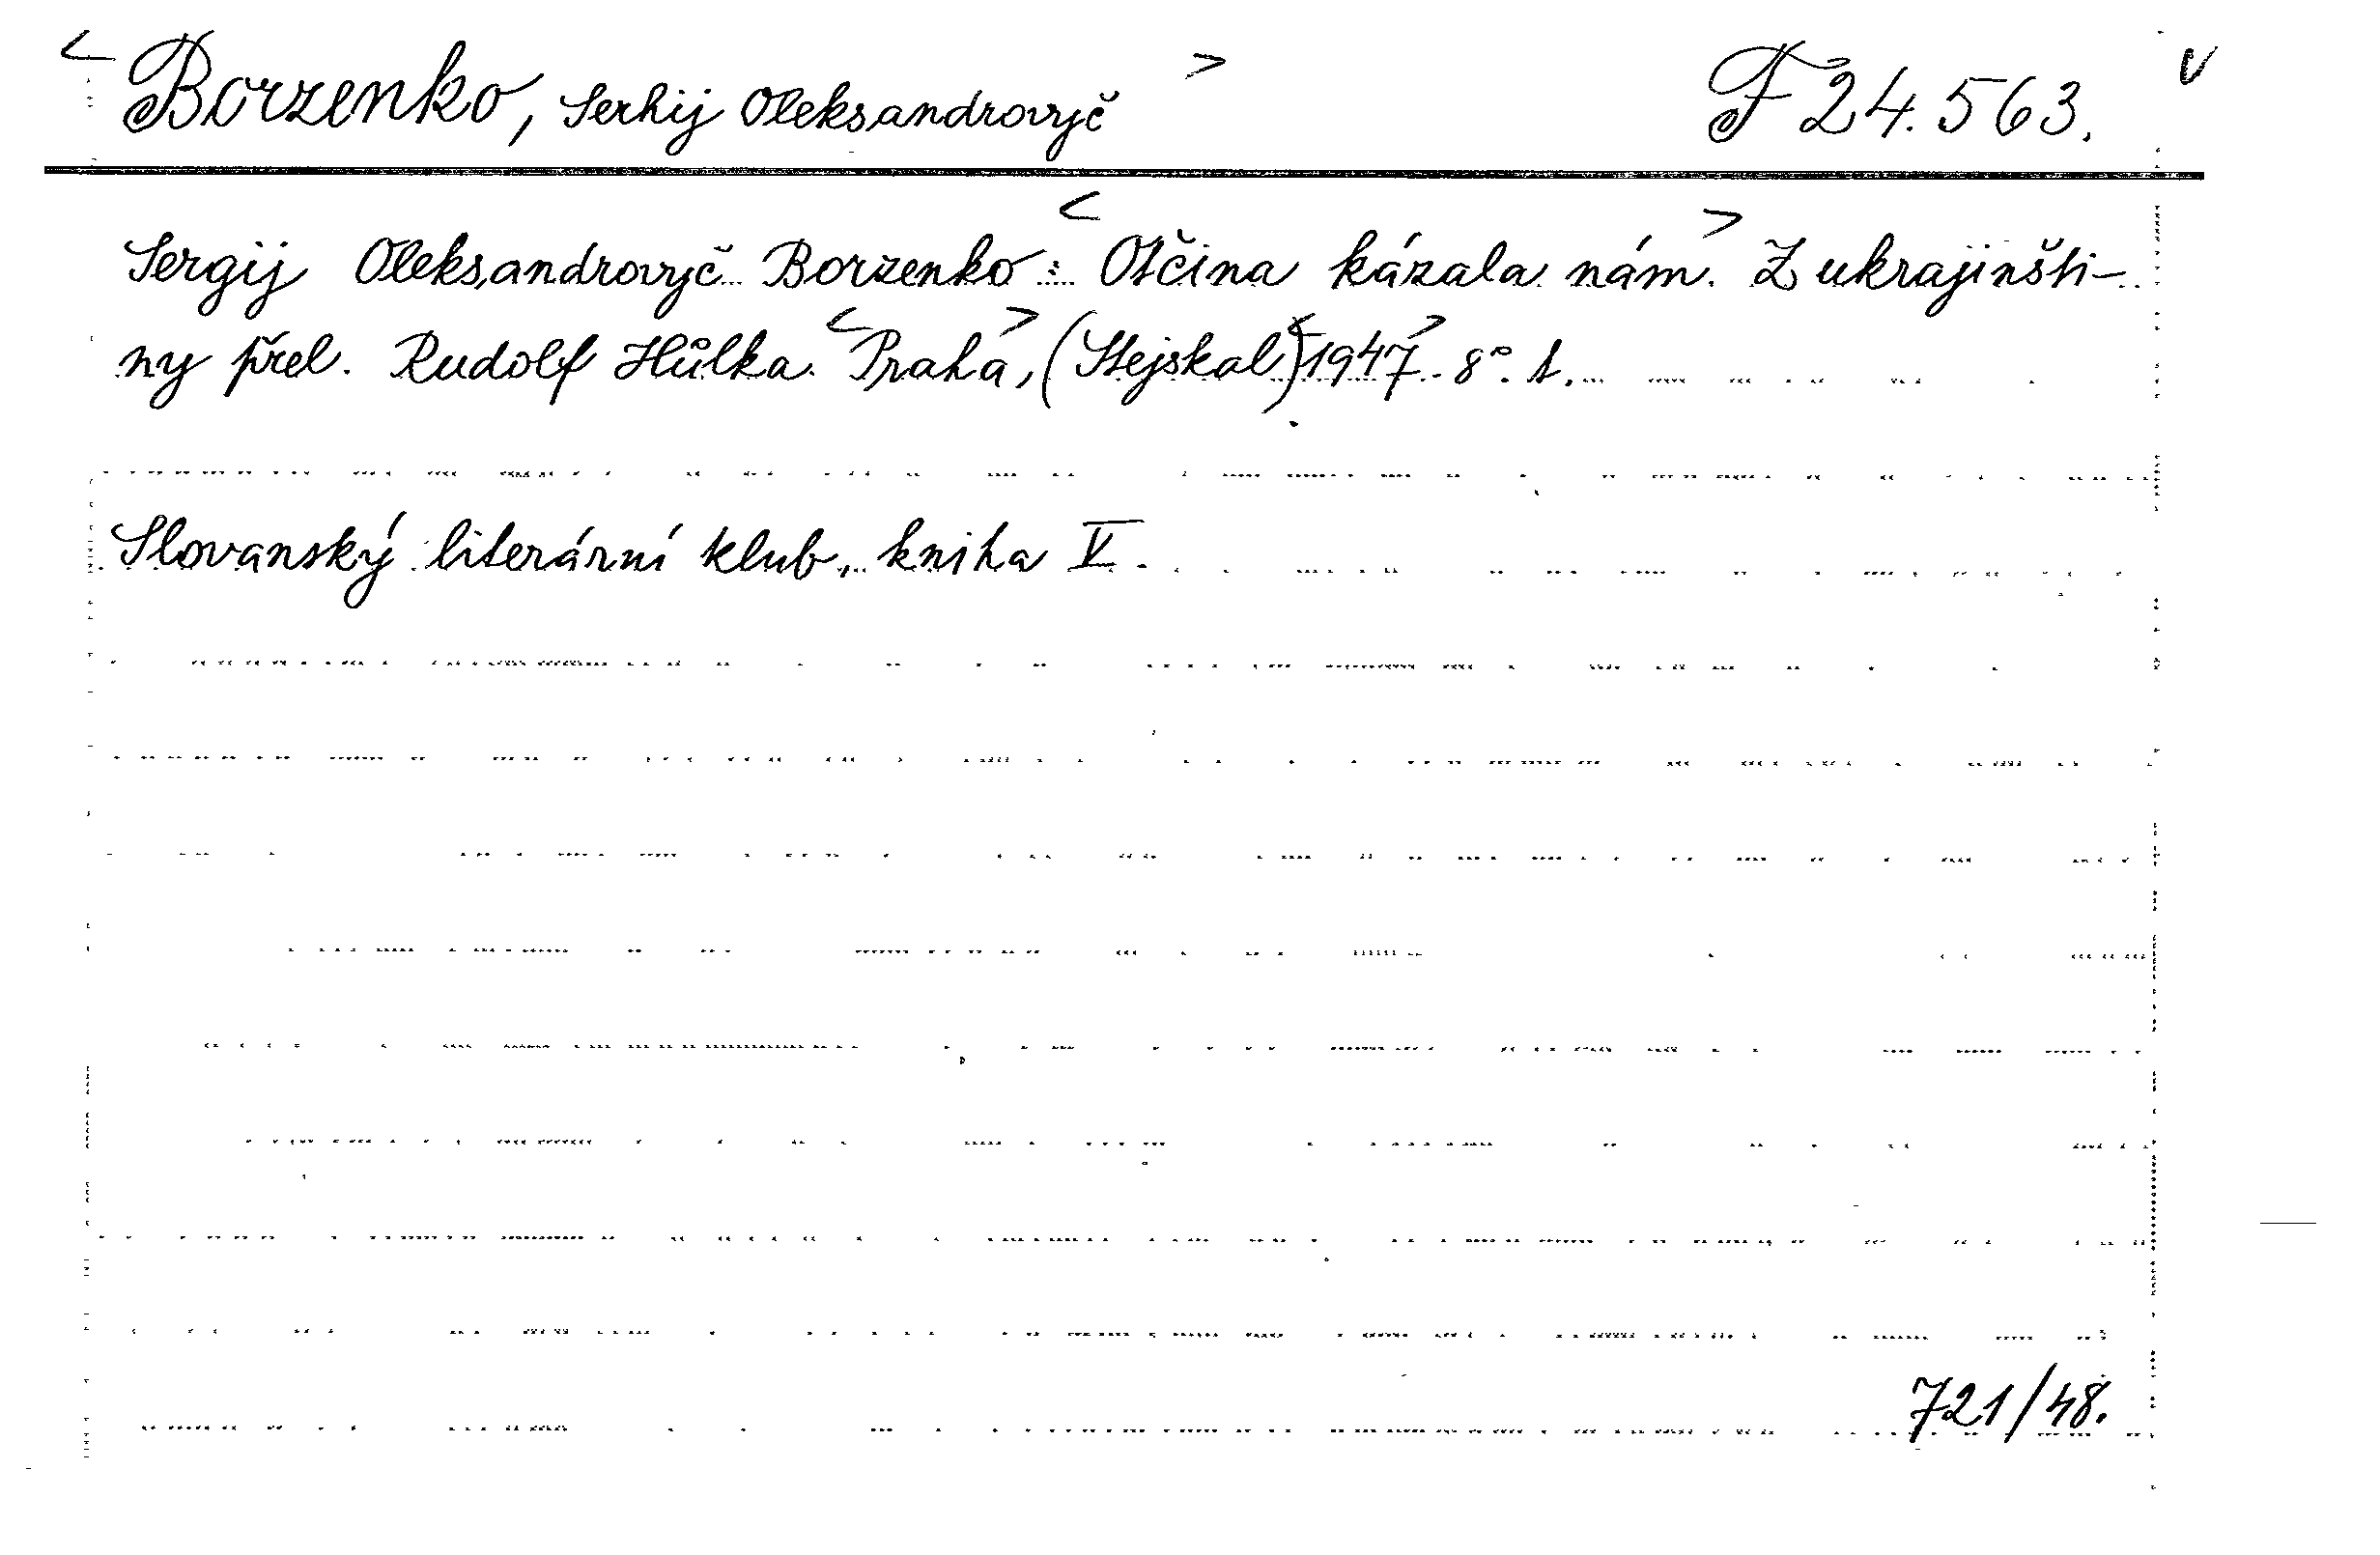 < Borzenko, Serhij Oleksandrovyč > F 24.563. v
Sergij Oleksandrovyč Borzenko : < Otčina kázala nám. > Z ukrajinšti-
ny přel. Rudolf Hůlka. < Praha >, (Stejskal) < 1947 >. 8°. s.
Slovanský literární klub, kniha V.
721/48.